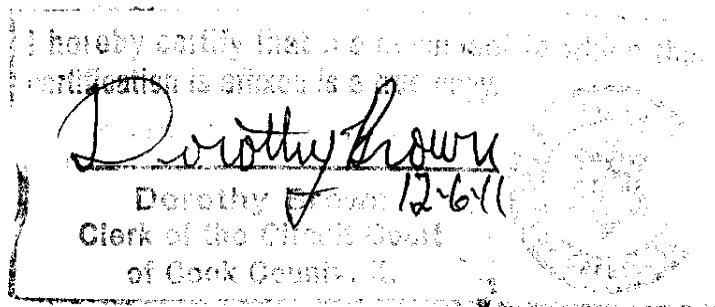 I hereby certify that the document to which this
certification is affixed is a true copy.
Dorothy Brown
12-6-11
Dorothy Brown
Clerk of the Circuit Court
of Cook County, IL